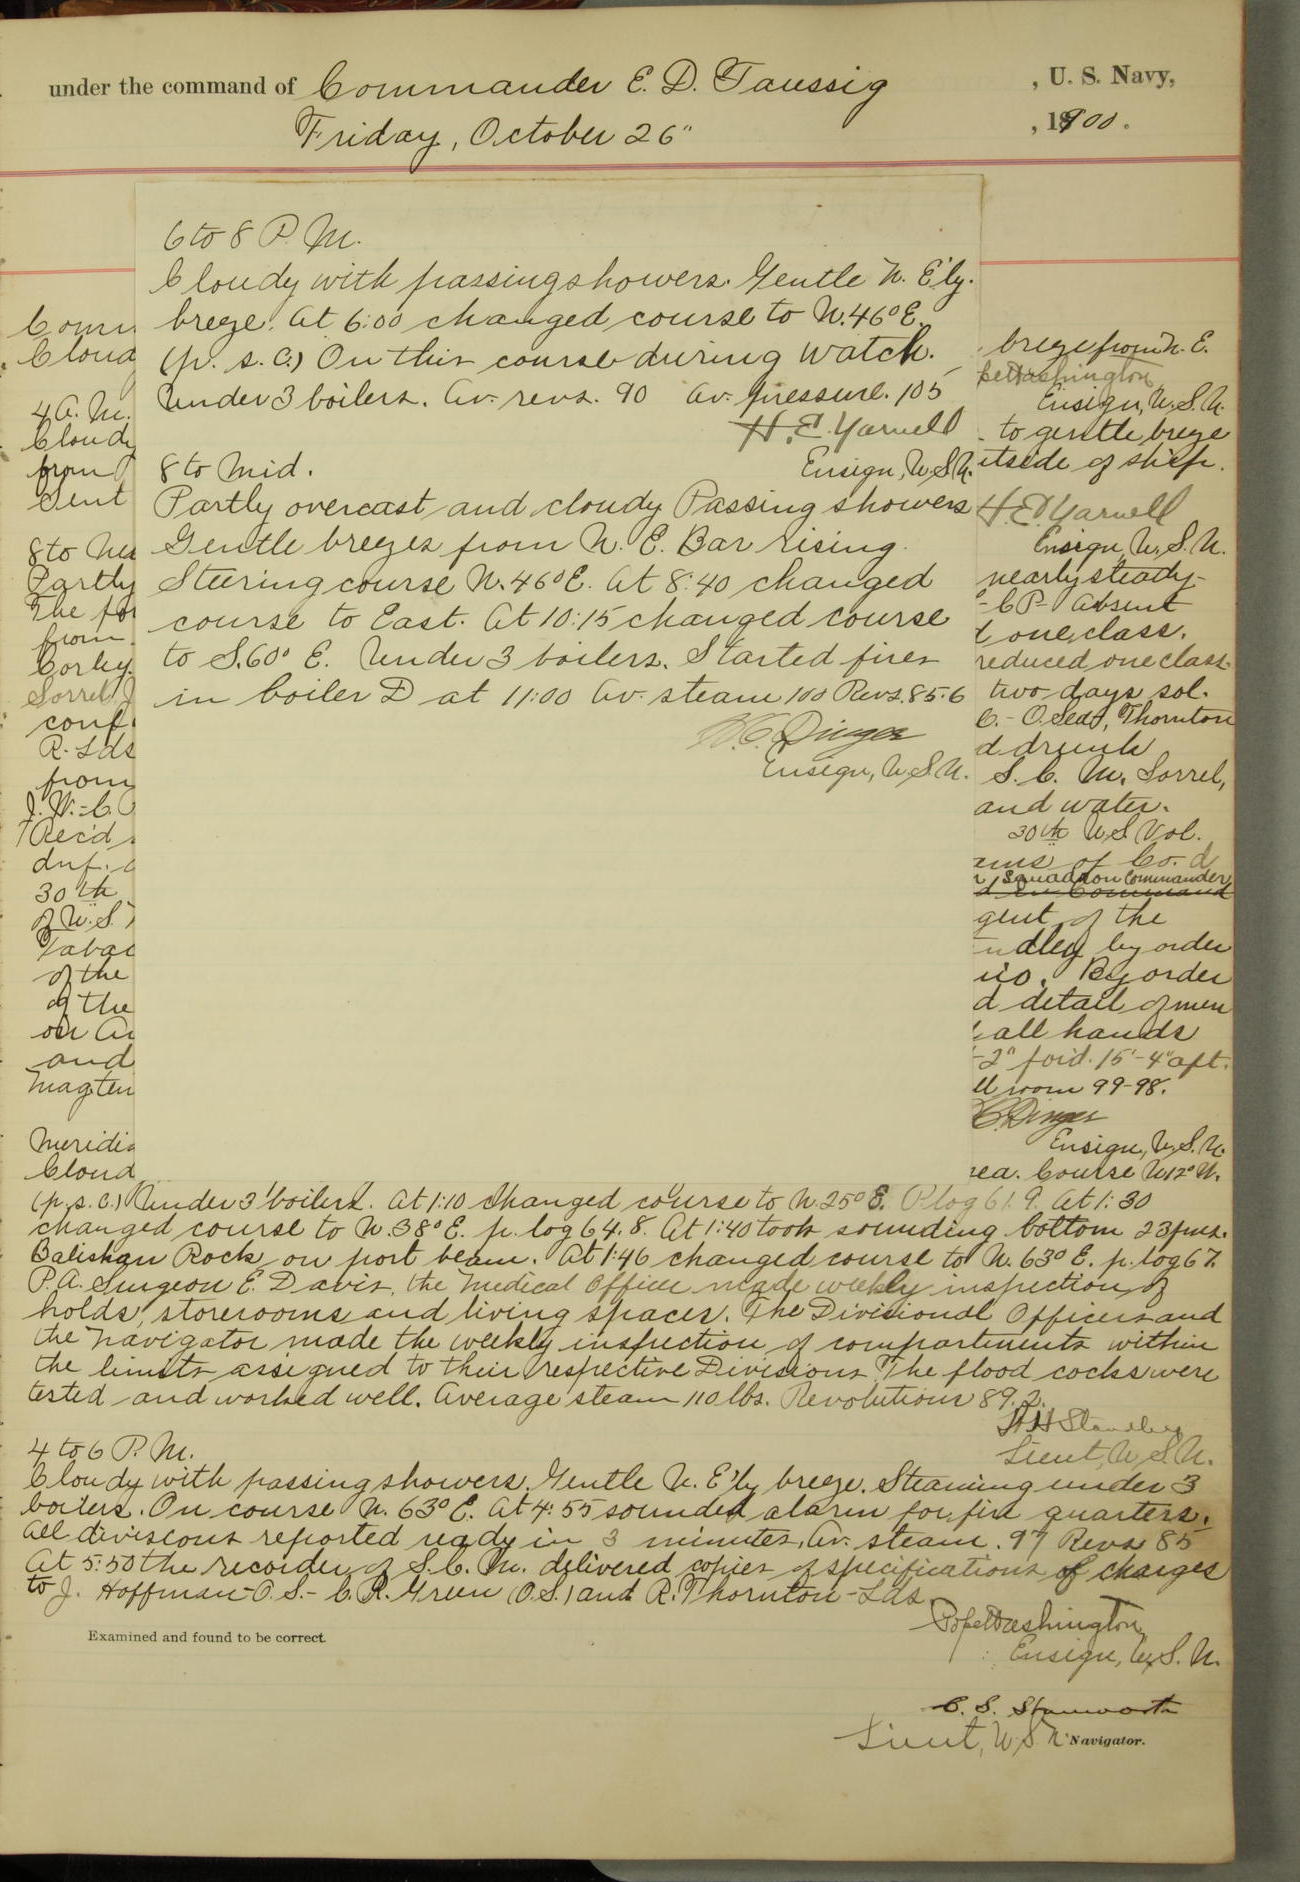 under the command of Commander E. D. Taussig, U. S. Navy,
Friday, October 26", 1900.
6 to 8 P. M.
Cloudy with passing showers. Gentle N. E'ly.
breeze. At 6:00 changed course to N.46°E.
(p. s. c.) On this course during watch.
Under 3 boilers. Av. revs. 90 Av. pressure. 105
H. E. Yarnell
Ensign, U.S.N.
8 to Mid.
Partly overcast and cloudy Passing showers
Gentle breezes from N. E. Bar rising.
Steering course N.46°E. At 8:40 changed
course to East. At 10:15 changed course
to S.60° E. Under 3 boilers. Started fires
in boiler D at 11:00 Av. steam 100 Revs. 85.6
H. C. Dinger
Ensign, U.S.N.
Com
Cloud
4 A. M.
Cloudy
from
Sent
8 to Mer
Partly
The for
from
Corley.
Sorrel, J
conf.
R. Lds
from
J. W. - C.
Rec'd
duf.
30th
of U.S.
Tabac
of the
of the
on Au
and
Magten
Meridia
Cloud
breeze from N. E.
Pope Washington
Ensign, U.S.N.
to gentle breeze
utside of ship.
H.E. Yarnell
Ensign, U.S.N.
nearly steady
- C P - Absent
d one class.
reduced one class
two days sol.
C. - O. Seas, Thornton
d drunk
S. C. M. Sorrel,
and water.
30th U S Vol.
ams of Co. d
Squadron Commander
gent of the
ndley by order
nio. By order
d detail of men
all hands
-2" for'd. 15'-4" aft.
ll room 99-98.
C. Dinger
Ensign, U.S.N.
rea. Course N12°W.
(p. s. c.) Under 3 boilers. At 1:10 changed course to N.25°E. P. log 61.9. At 1:30
changed course to N.38°E. p. log 64.8. At 1:40 took sounding bottom 23 fms.
Baliskan Rock on port beam. At 1:46 changed course to N. 63° E. p. log 67.
P.A. Surgeon E. Davis, the Medical Officer made weekly inspection of
holds, storerooms and living spaces. The Divisional Officers and
the Navigator made the weekly inspection of compartments within
the limits assigned to their respective Divisions. The flood cocks were
tested and worked well. Average steam 110 lbs. Revolutions 89.2.
W H Standley
Lieut, U.S.N.
4 to 6 P. M.
Cloudy with passing showers. Gentle N. E'ly breeze. Steaming under 3
boilers. On course N. 63° E. At 4:55 sounded alarm for fire quarters.
All divisions reported ready in 3 minutes. Av. steam. 97 Revs 85
At 5:50 the recorder of S. C. M. delivered copies of specifications of charges
to J. Hoffman - O. S. - C. R. Green (O.S.) and R. Thornton - Lds.
Pope Washington
Ensign, U.S.N.
Examined and found to be correct.
C. S. Stanworth
Lieut, U.S.N. Navigator.